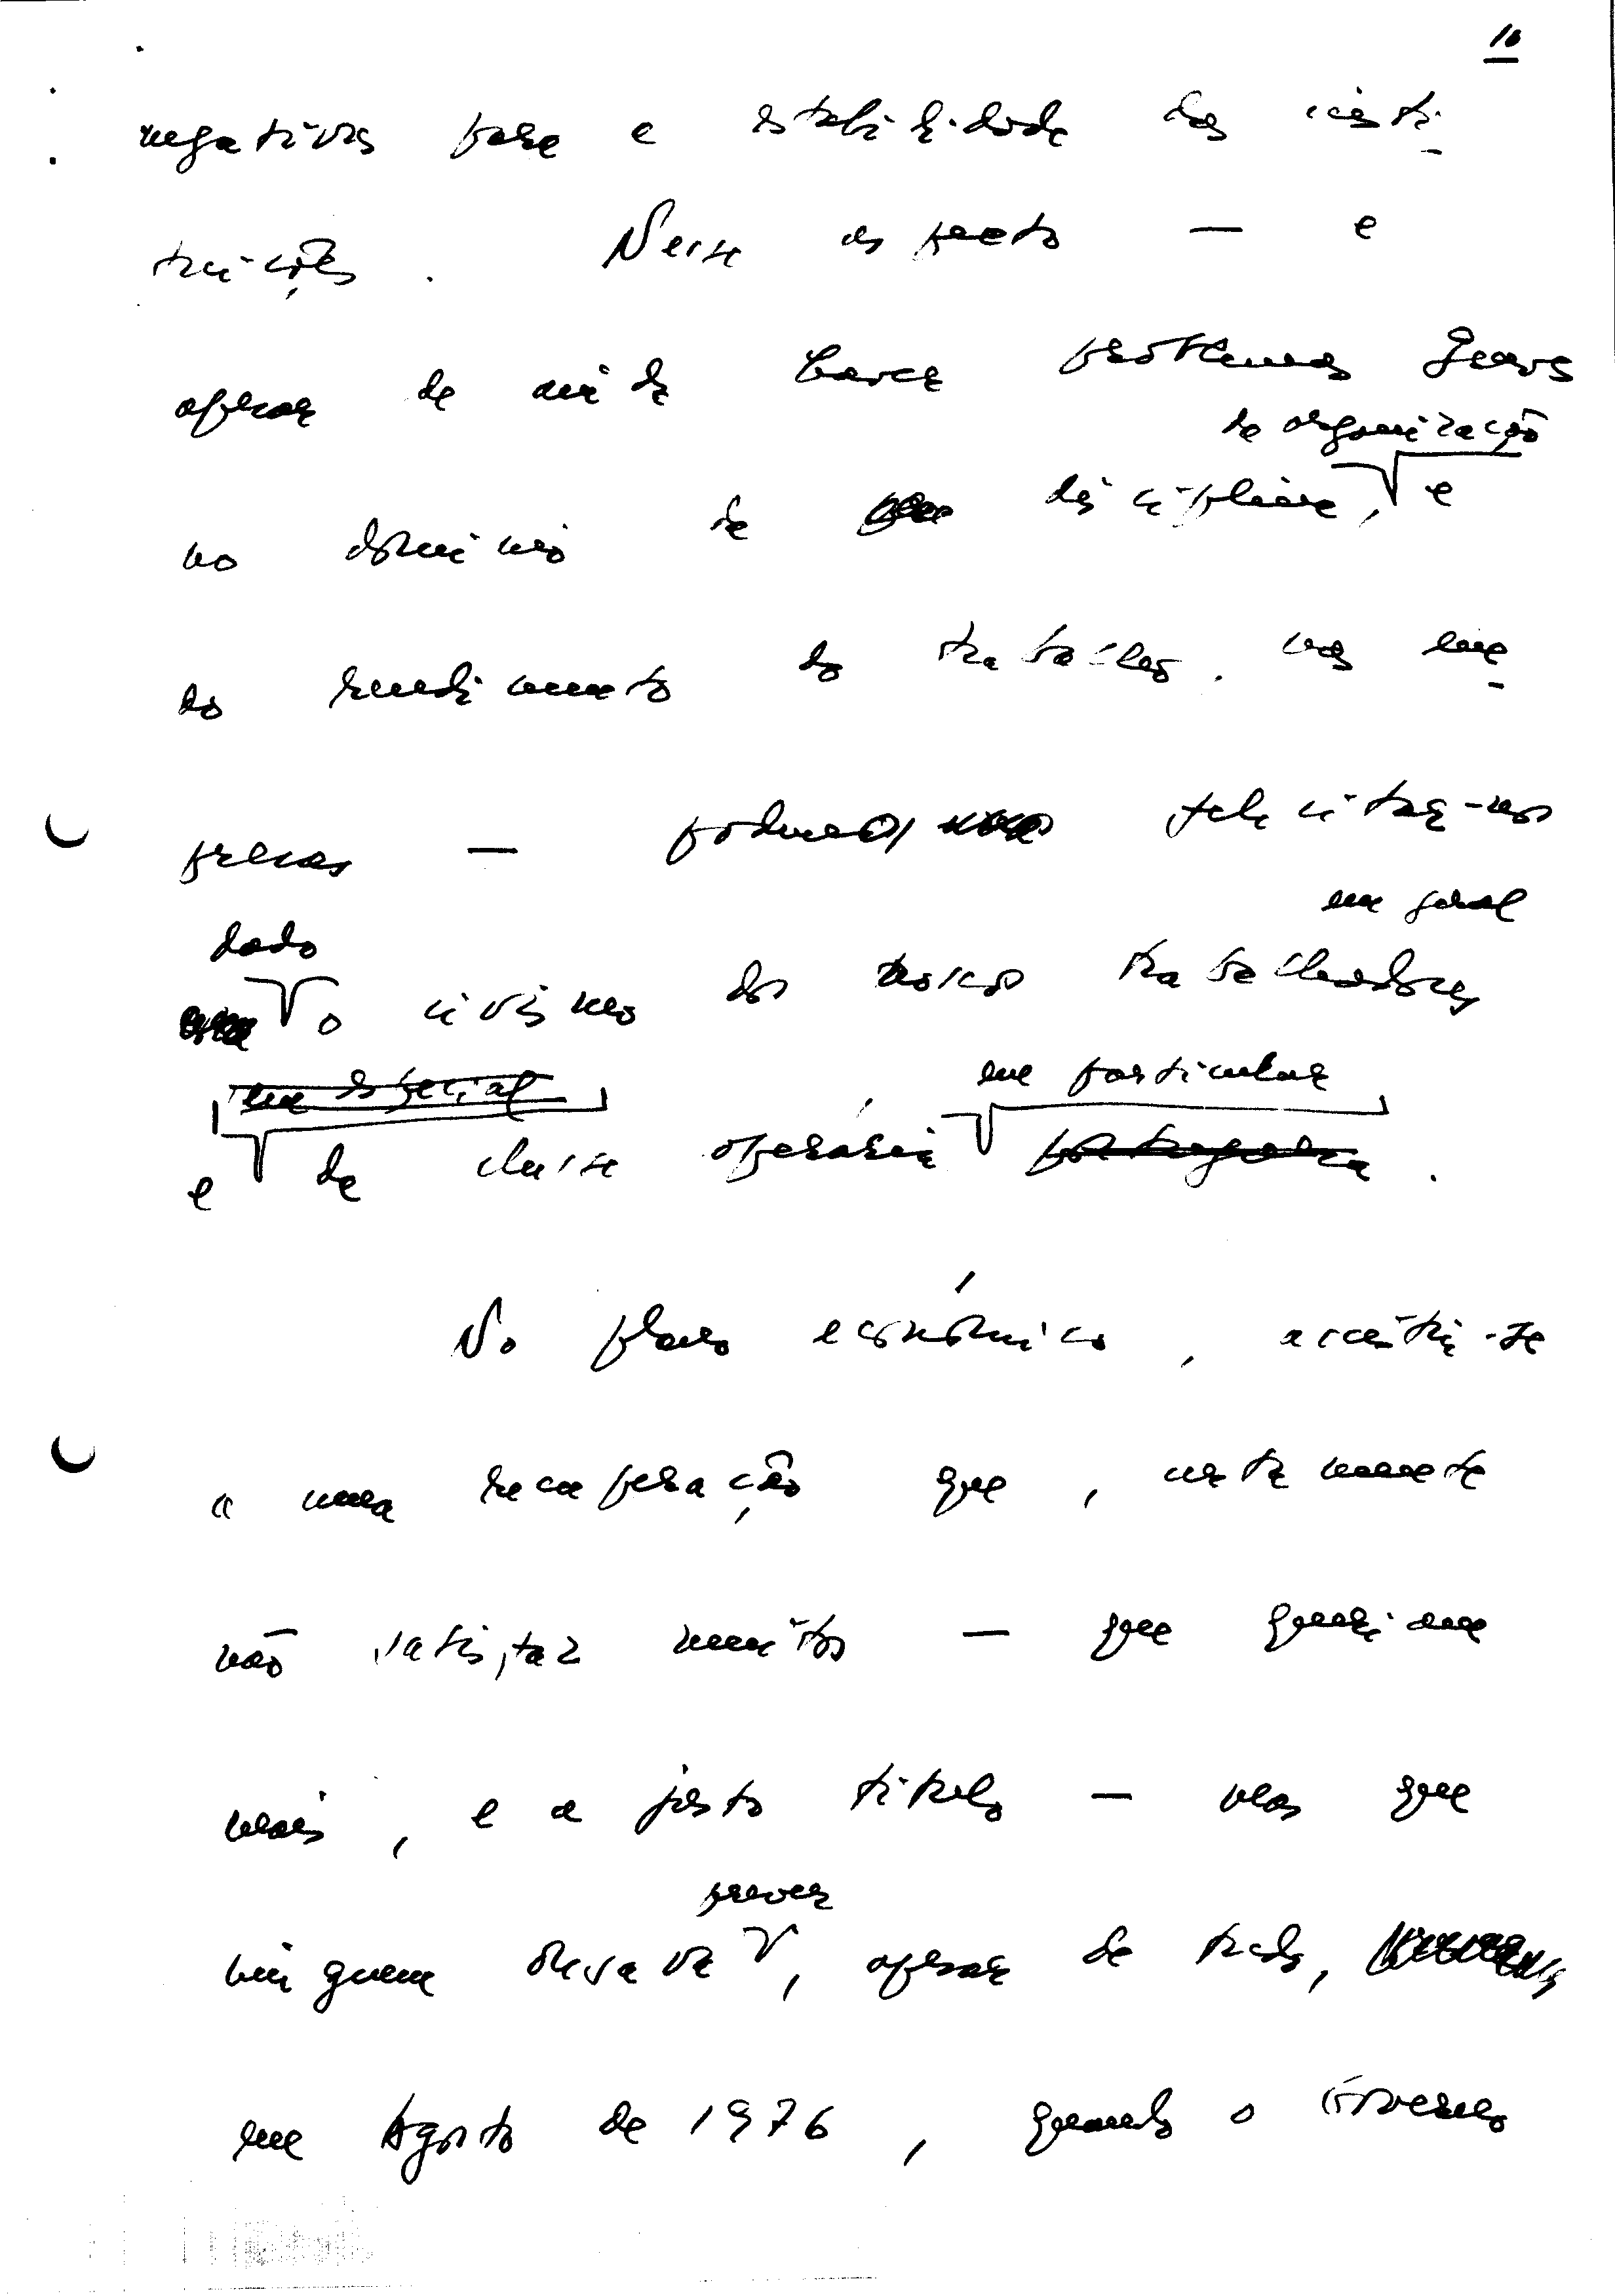 10
negativos para a estabilidade das insti-
tuições. Nesse aspecto — e
apesar de ainda haver problemas graves
de organização
no domínio da disciplina, e
do rendimento do trabalho, nas em-
presas — podemos felicitar-nos
em geral
dado
o civismo dos nossos trabalhadores
em especial em particular
e da classe operária portuguesa.
No plano económico, assistiu-se
a uma recuperação que, certamente
não satisfaz muitos — que queriam
mais, e a justo título — mas que
prever
ninguem ousava, apesar de tudo,
em Agosto de 1976, quando o Governo